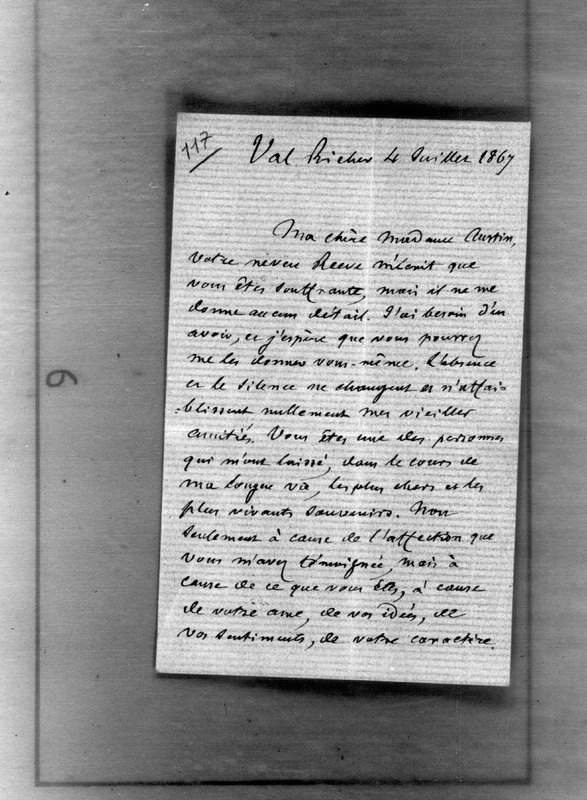 117
Val Richer 4 Juillet 1867
Ma chère Madame Austin,
votre neveu Reeve m'écrit que
vous êtes souffrante, mais il ne me
donne aucun détail. J'ai besoin d'en
avoir, et j'espère que vous pourrez
me les donner vous-même. L'absence
et le silence ne changent et n'affai-
-blissent nullement mes vieilles
amitiés. Vous êtes une des personnes
qui m'ont laissé, dans le cours de
ma longue vie, les plus chers et les
plus vivants souvenirs. Non
seulement à cause de l'affection que
vous m'avez témoignée, mais à
cause de ce que vous êtes, à cause
de votre ame, de vos idées, de
vos sentiments, de votre caractère.
6